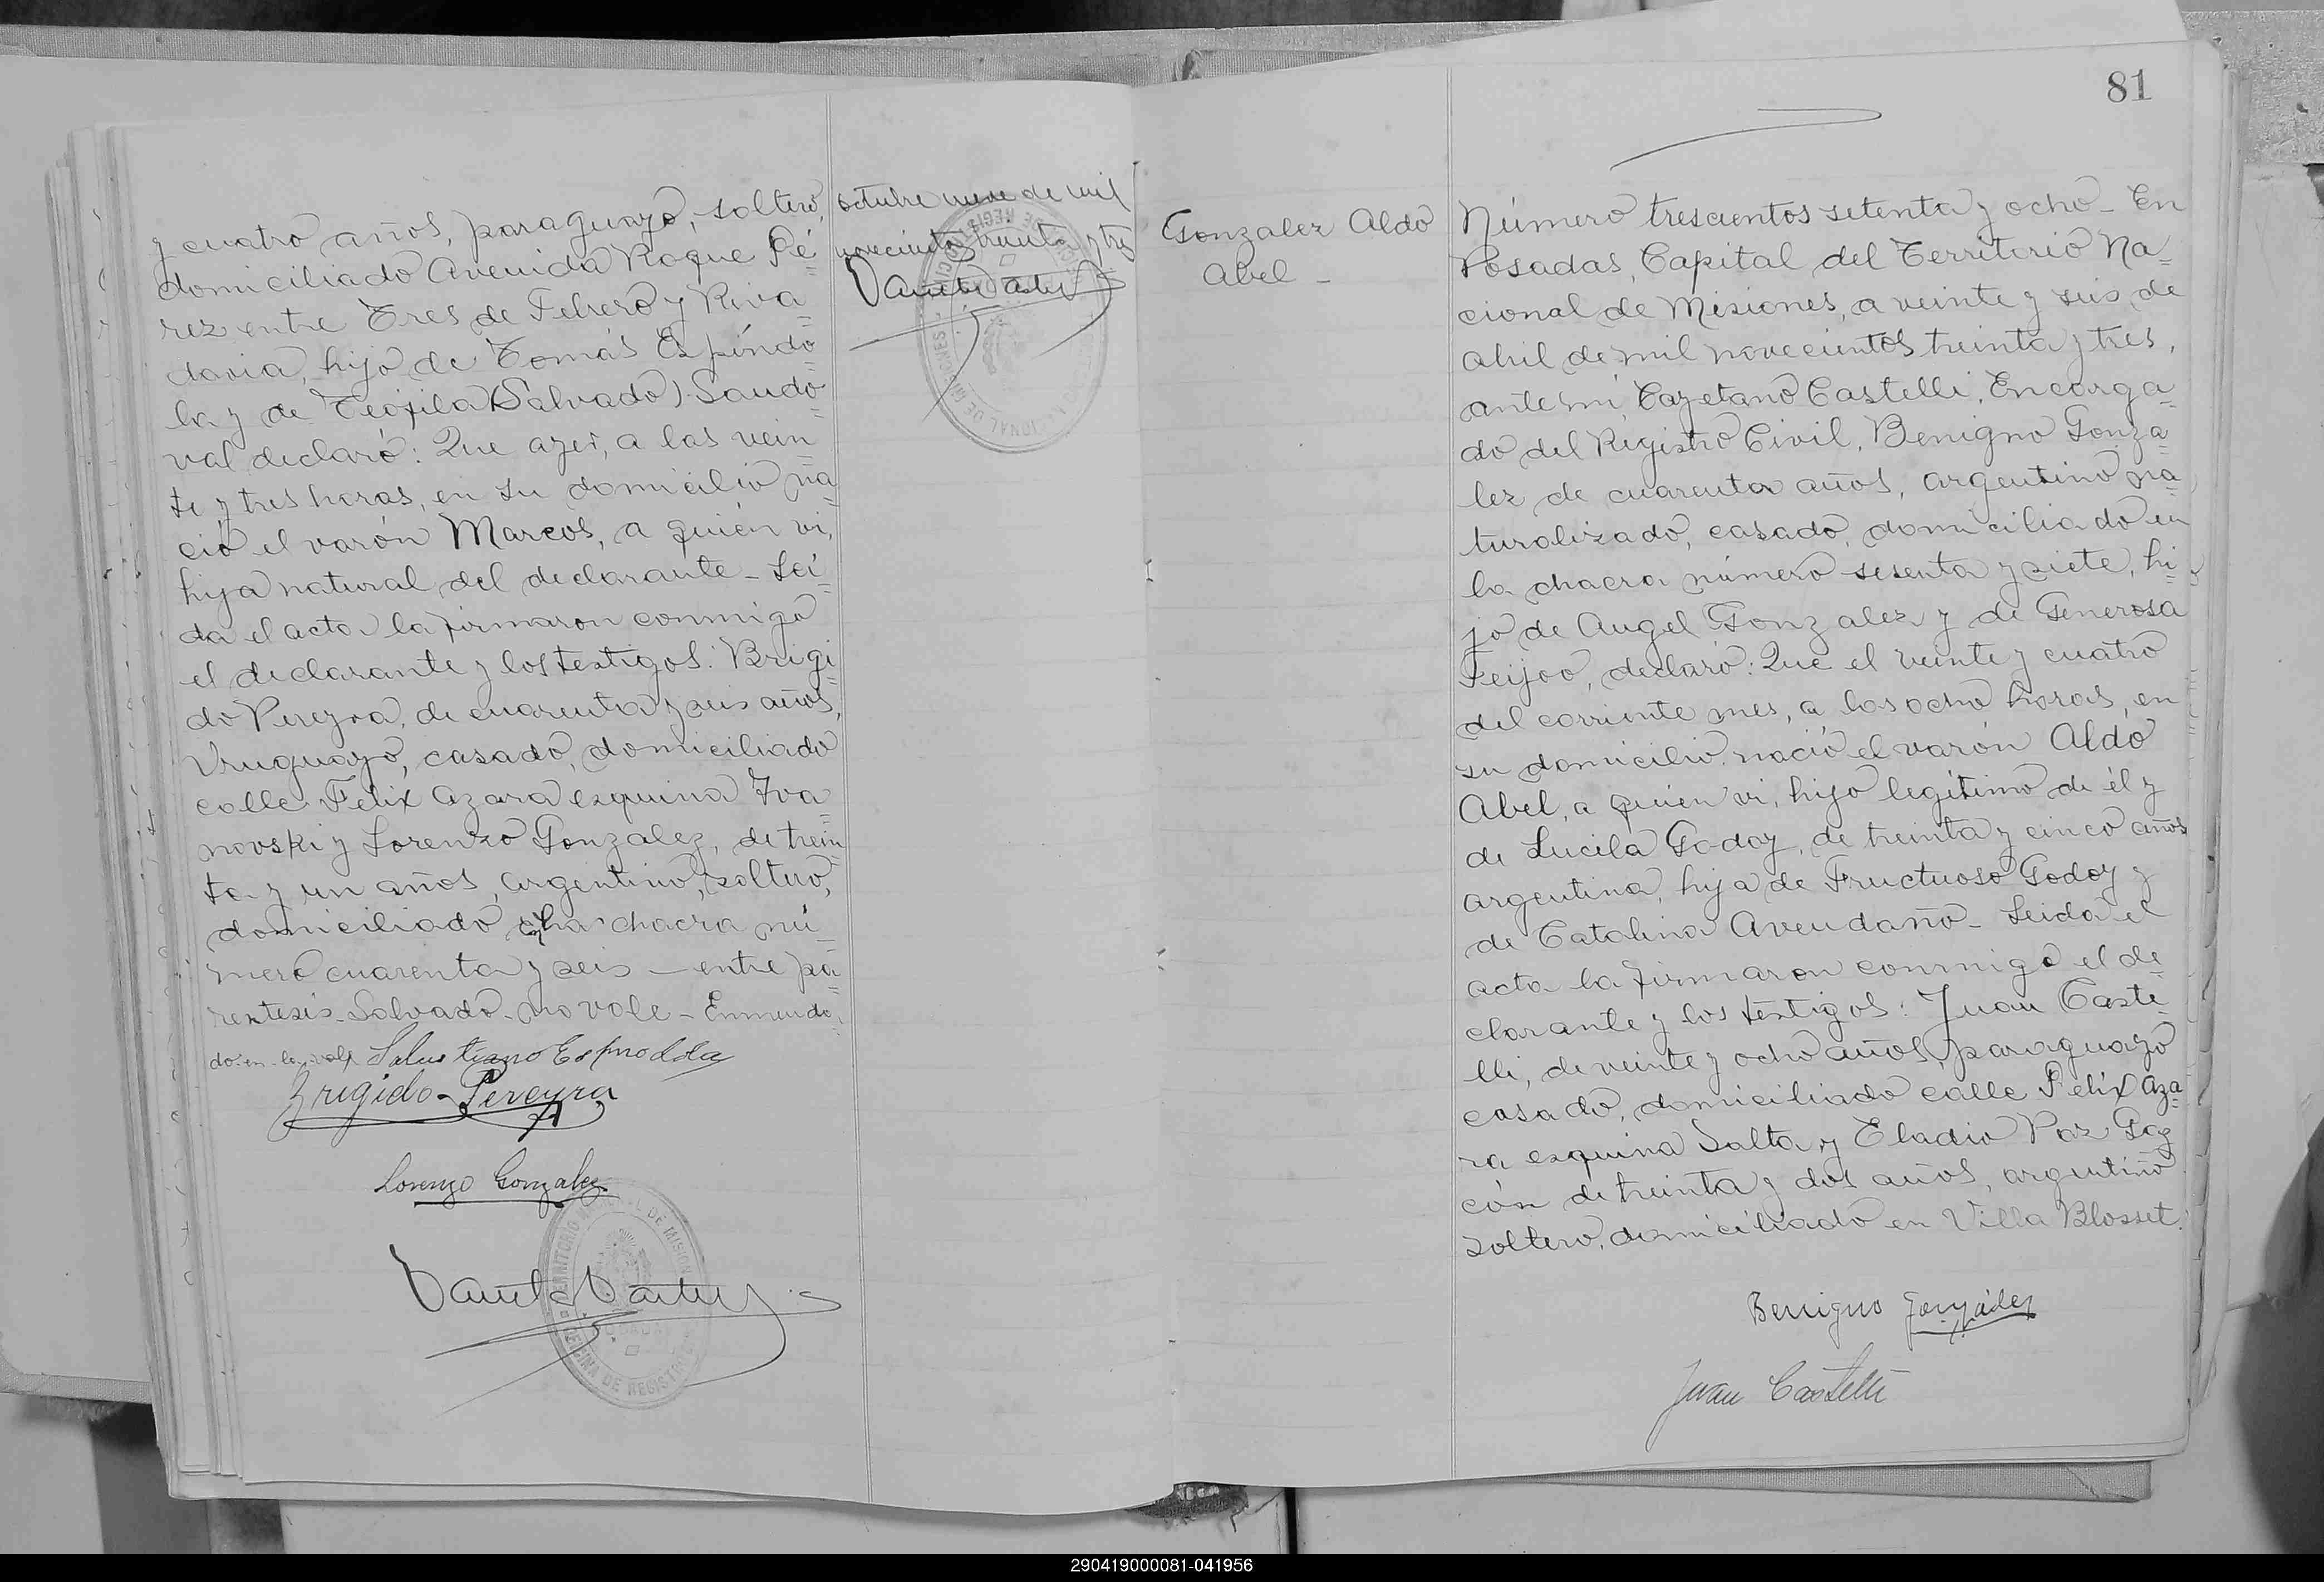 y cuatro años, paraguayo, soltero,
domiciliado Avenida Roque Pé=
rez entre Tres de Febrero y Riva=
davia, hijo de Tomás Espíndo=
la y de Teofila (Salvado) Sando=
val declaró: Que ayer, a las vein=
te y tres horas, en su domicilio na=
ció el varón Marcos, a quién vi,
hijo natural del declarante - Leí=
da el acta la firmaron conmigo
el declarante y los testigos: Brigi=
do Pereyra, de cuarenta y seis años,
Uruguayo, casado, domiciliado
calle Felix Azara esquina Iva=
novski y Lorenzo Gonzalez, de trein=
ta y un años, argentino, soltero,
domiciliado en la chacra nú=
mero cuarenta y seis - entre pa=
rentesis - Salvado - no vale - Enmenda=
do - en - la - vale
Salustiano Espindola
Brigido - Pereyra
Lorenzo Gonzalez
TERRITORIO NACIONAL DE MISIONES
OFICINA DE REGISTRO
octubre nueve de mil
novecientos treinta y tres
81
Gonzalez Aldo
Abel -
Número trescientos setenta y ocho - En
Posadas, Capital del Territorio Na=
cional de Misiones, a veinte y seis de
abril de mil novecientos treinta y tres,
ante mi, Cayetano Castelli, Encarga=
do del Registro Civil, Benigno Gonza=
lez de cuarenta años, argentino na=
turalizado, casado, domiciliado en
la chacra número sesenta y siete, hi=
jo de Angel Gonzalez y de Generosa
Feijoo, declaró: Que el veinte y cuatro
del corriente mes, a las ocho horas, en
su domicilio, nació el varón Aldo
Abel, a quien vi, hijo legítimo de él y
de Lucila Godoy, de treinta y cinco años
argentina, hija de Fructuoso Godoy y
de Catalina Avendaño - Leida el
acta la firmaron conmigo el de=
clarante y los testigos: Juan Caste=
lli, de veinte y ocho años, paraguayo
casado, domiciliado calle Felix Aza=
ra esquina Salta y Eladio Paz Gag
cón de treinta y dos años, argentino
soltero, domiciliado en Villa Blosset.
Benigno González
Juan Castelli
290419000081-041956